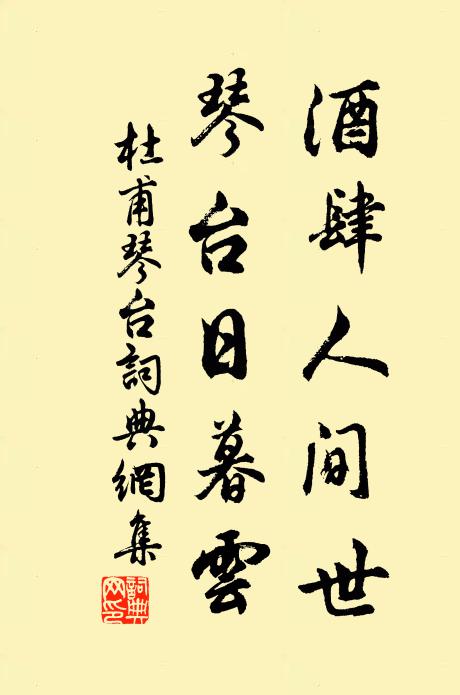 酒肆人间世
琴台日暮雲
杜甫琴台詞典網集
詞典網印